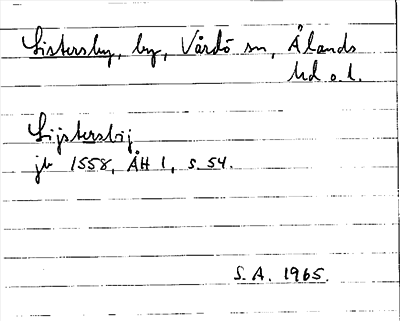 Listersby, by, Vårdö sn, Ålands
hd o. l.
Lijstersbij
jb 1558, ÅH 1, s. 54.
S. A. 1965.